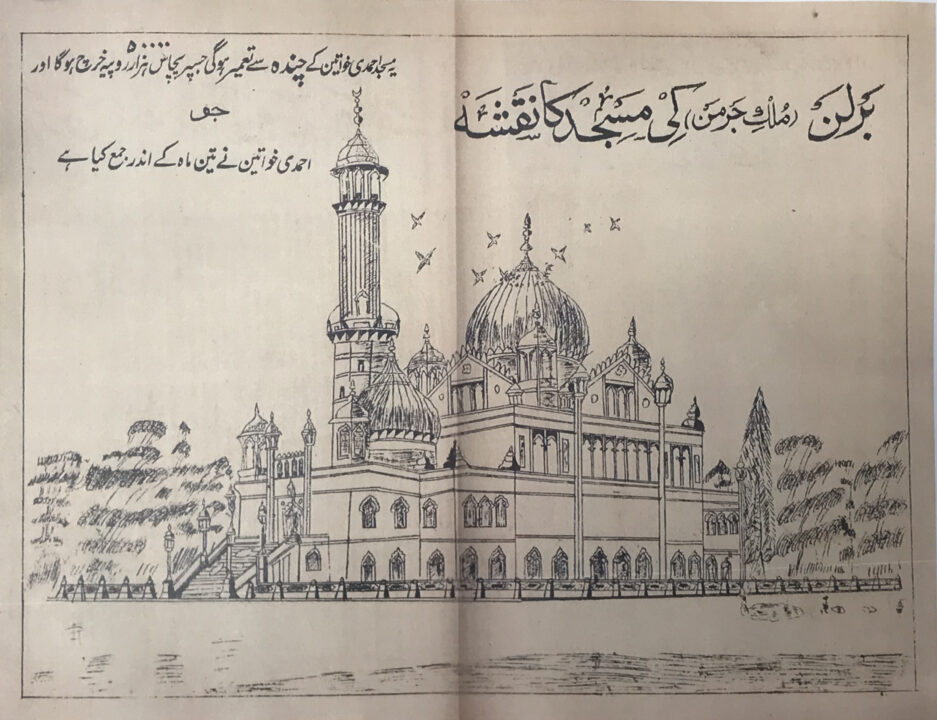 برلن (مُلکِ جرمن) کی مسجد کا نقشہ
یہ مسجد احمدی خواتین کے چندہ سے تعمیر ہوگی جسپر پچاس ہزار ۵۰۰۰۰ روپیہ خرچ ہوگا اور
جو
احمدی خواتین نے تین ماہ کے اندر جمع کیا ہے